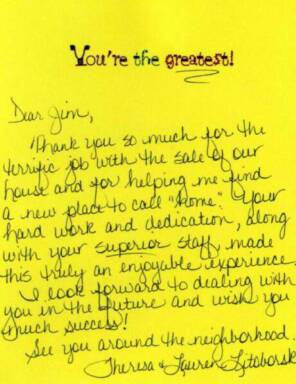 You're the greatest!
Dear Jim,
Thank you so much for the
terrific job with the sale of our
house and for helping me find
a new place to call "home." Your
hard work and dedication, along
with your superior staff, made
this truly an enjoyable experience.
I look forward to dealing with
you in the future and wish you
much success!
See you around the neighborhood.
Theresa & Lauren